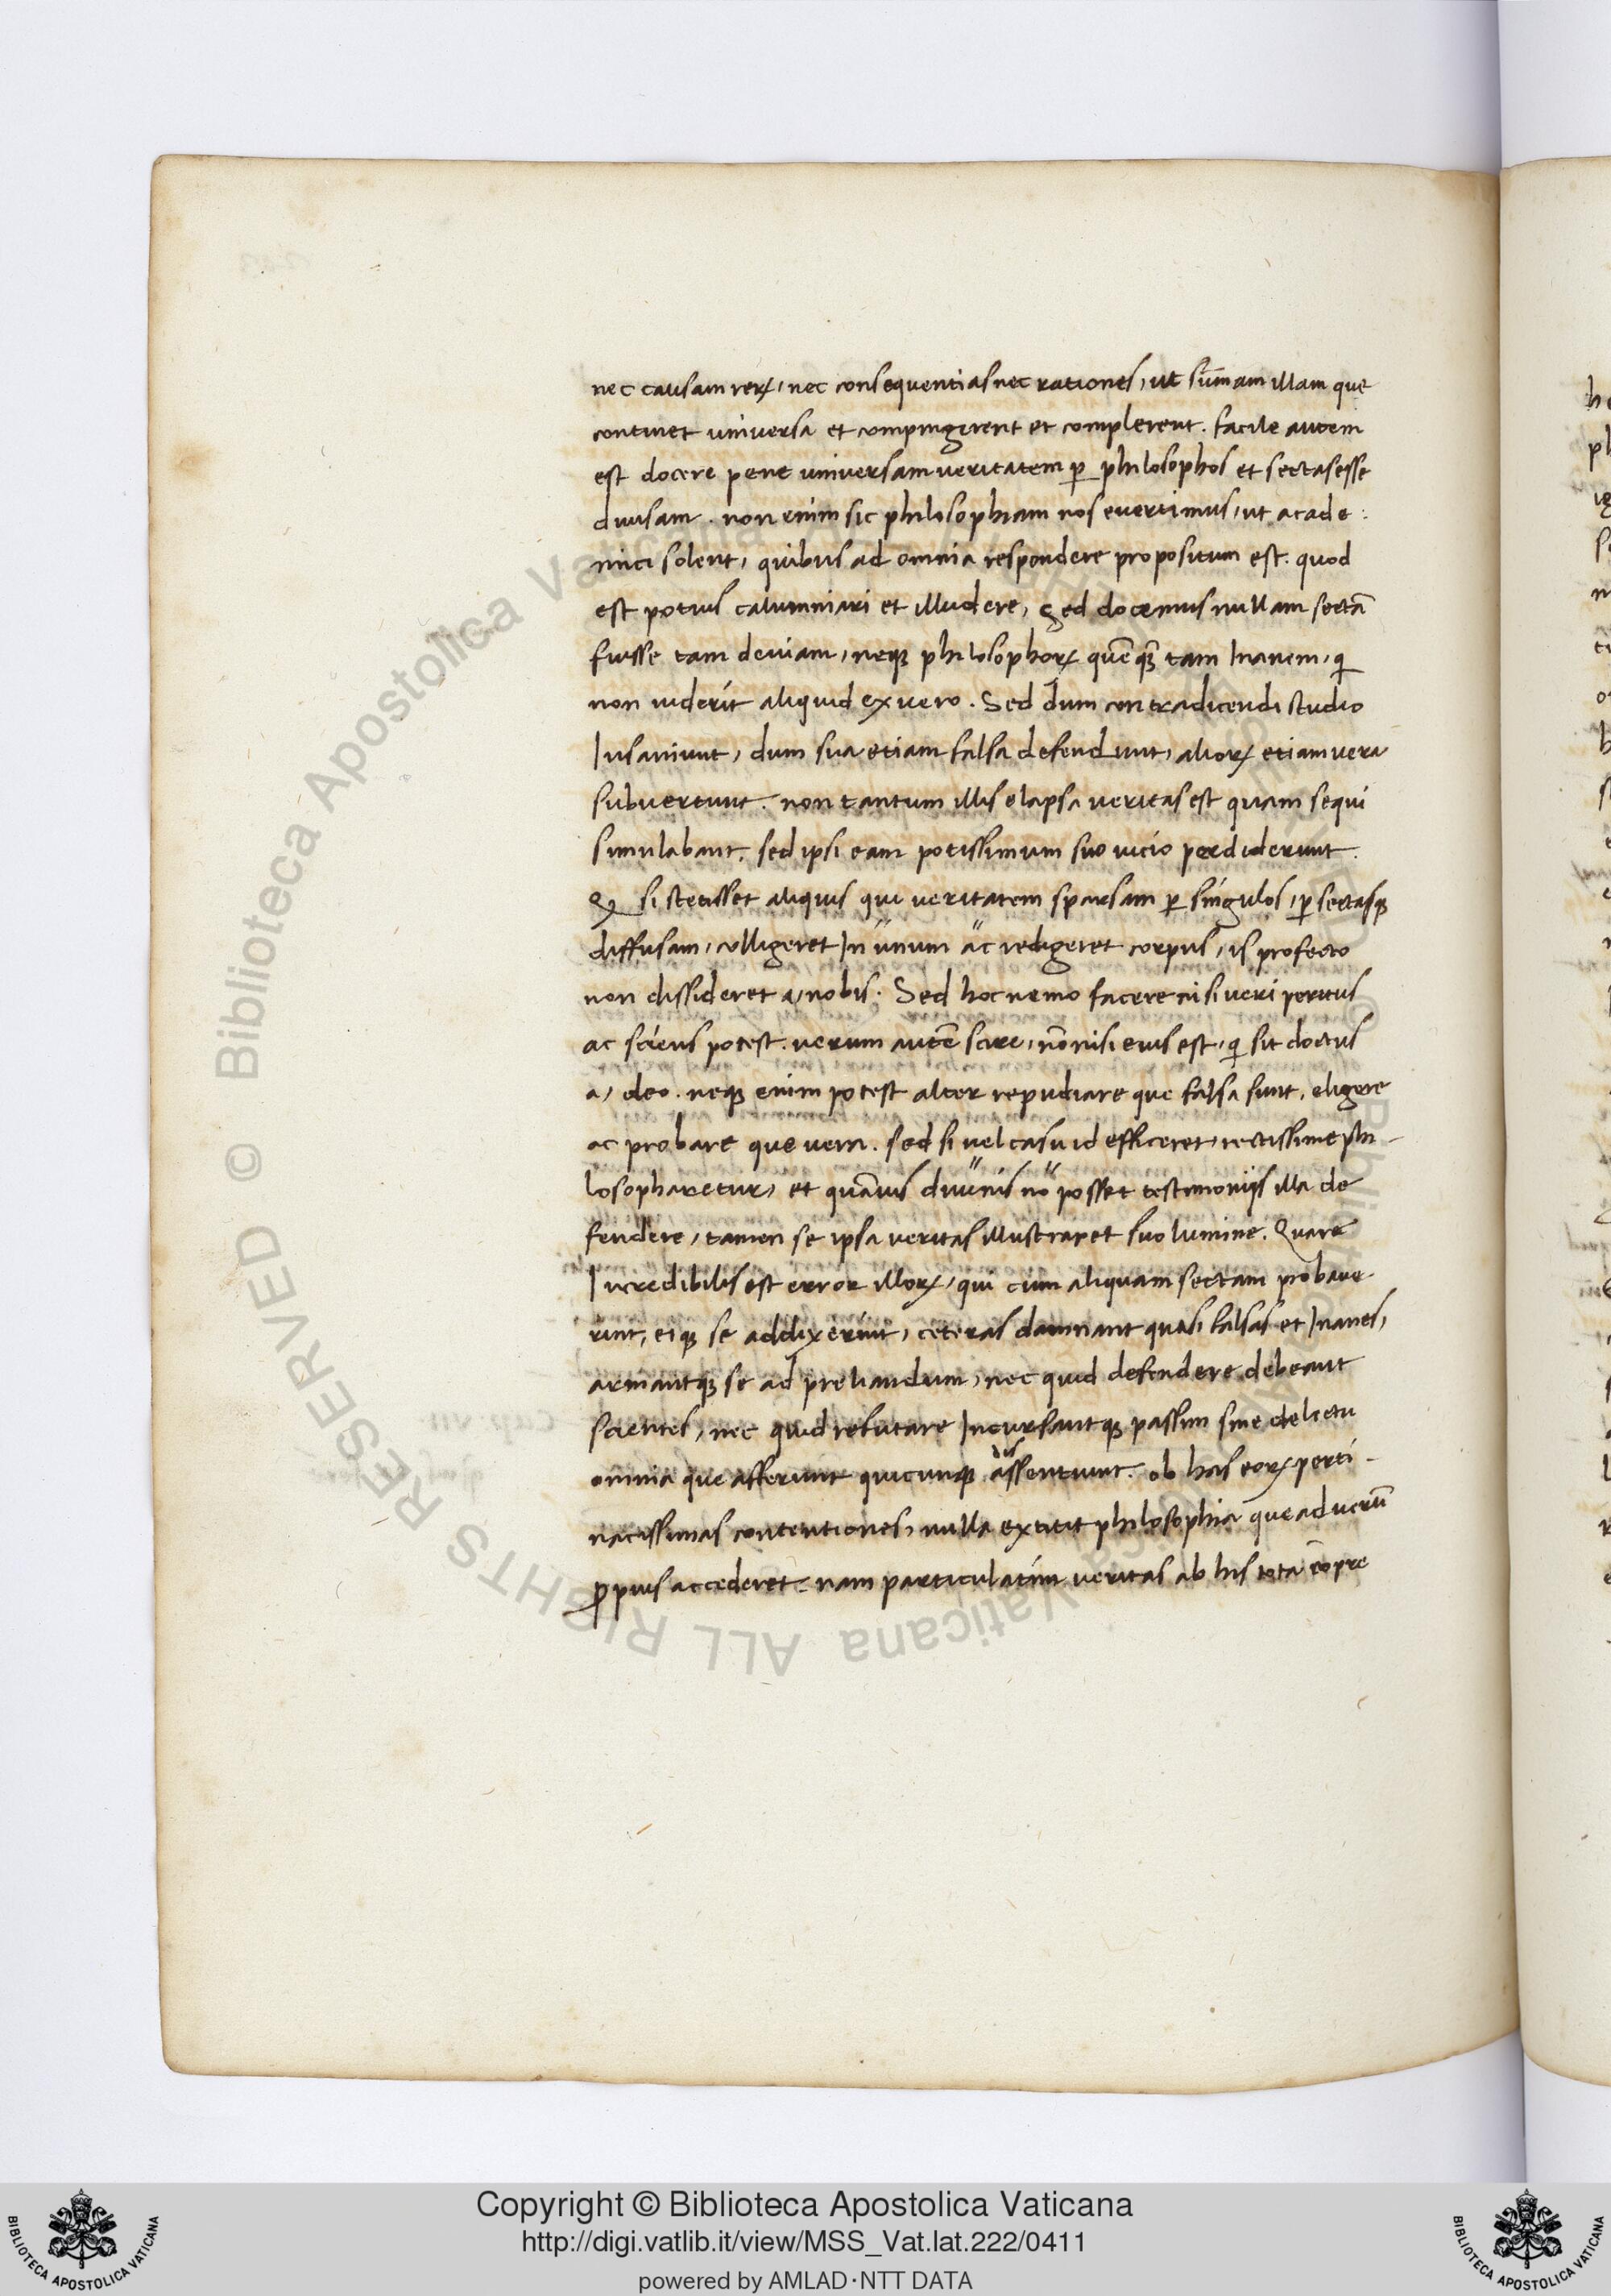 nec causam reꝝ, nec consequentias nec rationes, ut sūmam illam que
continet universa et compingerent et complerent. facile autem
est docere pene universam veritatem ꝑ philosophos et sectas esse
divisam. non enim sic philosophiam nos evertimus, ut acade:
mici solent, quibus ad omnia respondere propositum est. quod
est potius calumniari et illudere, sed docemus nullam sectā
fuisse tam deviam, neqꝫ philosophoꝝ quēqꝫ tam Inanem, qi
non viderit aliquid ex vero. Sed dum contradicendi studio
Insaniunt, dum sua etiam falsa defendunt, alioꝝ etiam vera
subvertunt. non tantum illis elapsa veritas est quam sequi
simulabant, sed ipsi eam potissimum suo vicio perdiderunt.
Qꝫ si stetisset aliquis qui veritatem sparsam ꝑ singulos, ꝑ sectasqꝫ
diffusam, colligeret In "unum "ac redigeret corpus, is profecto
non dissideret a, nobis. Sed hoc nemo facere nisi veri peritus
ac sciens potest. verum autē scire, nō nisi eius est, qi sit doctus
a, deo. neqꝫ enim potest alter repudiare que falsa sunt, eligere
ac probare que vera. sed si vel casu id efficeret, rectissime phi-
losopharetur, et quāvis divinis nō posset testimonijs illa de
fendere, tamen se ipsa veritas illustraret suo lumine. Quare
Incredibilis est error illoꝝ, qui cum aliquam sectam probave-
rint, eiqꝫ se addixerint, ceteras damnant quasi falsas et Inanes,
armantqꝫ se ad preliandum, nec quid defendere debeant
scientes, nec quid refutare Incursantqꝫ passim sine delectu
omnia que afferunt quicunqꝫ dissentiunt. ob has eoꝝ perti-
nacissimas contentiones, nulla extitit philosophia que ad verū
ꝓpius accederet. nam particulatim veritas ab his tota cōpre
Copyright © Biblioteca Apostolica Vaticana
http://digi.vatlib.it/view/MSS_Vat.lat.222/0411
powered by AMLAD·NTT DATA
BIBLIOTECA APOSTOLICA VATICANA
BIBLIOTECA APOSTOLICA VATICANA
© Biblioteca Apostolica Vaticana ALL RIGHTS RESERVED